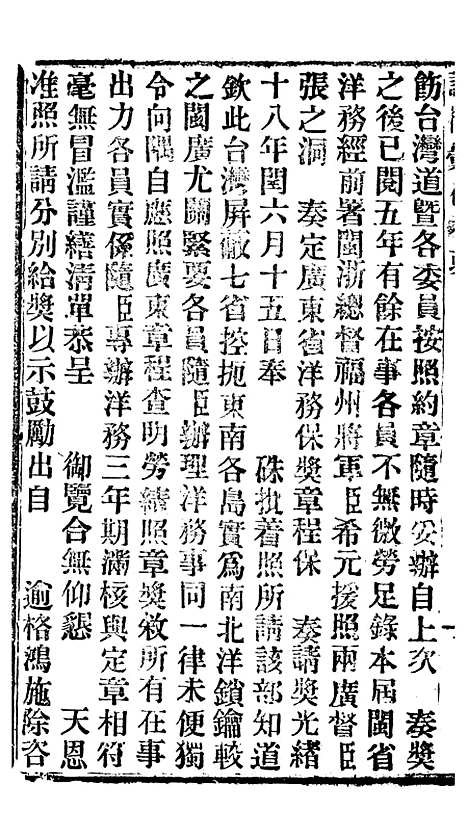 飭台灣道暨各委員按照約章隨時妥辦自上次　奏獎
之後已閱五年有餘在事各員不無微勞足錄本屆閩省
洋務經前署閩浙總督福州將軍臣希元援照兩廣督臣
張之洞　奏定廣東省洋務保獎章程保　奏請獎光緒
十八年閏六月十五日奉　硃批着照所請該部知道
欽此台灣屏蔽七省控扼東南各島實爲南北洋鎖鑰較
之閩廣尤關緊要各員隨臣辦理洋務事同一律未便獨
令向隅自應照廣東章程查明勞績照章獎敘所有在事
出力各員實係隨臣專辦洋務三年期滿核與定章相符
毫無冒濫謹繕清單恭呈　御覽合無仰懇　天恩
准照所請分別給獎以示鼓勵出自　逾格鴻施除咨